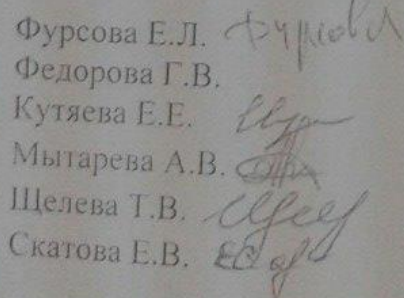 Фурсова Е.Л. Фурсова
Федорова Г.В.
Кутяева Е.Е.
Мытарева А.В.
Щелева Т.В.
Скатова Е.В.